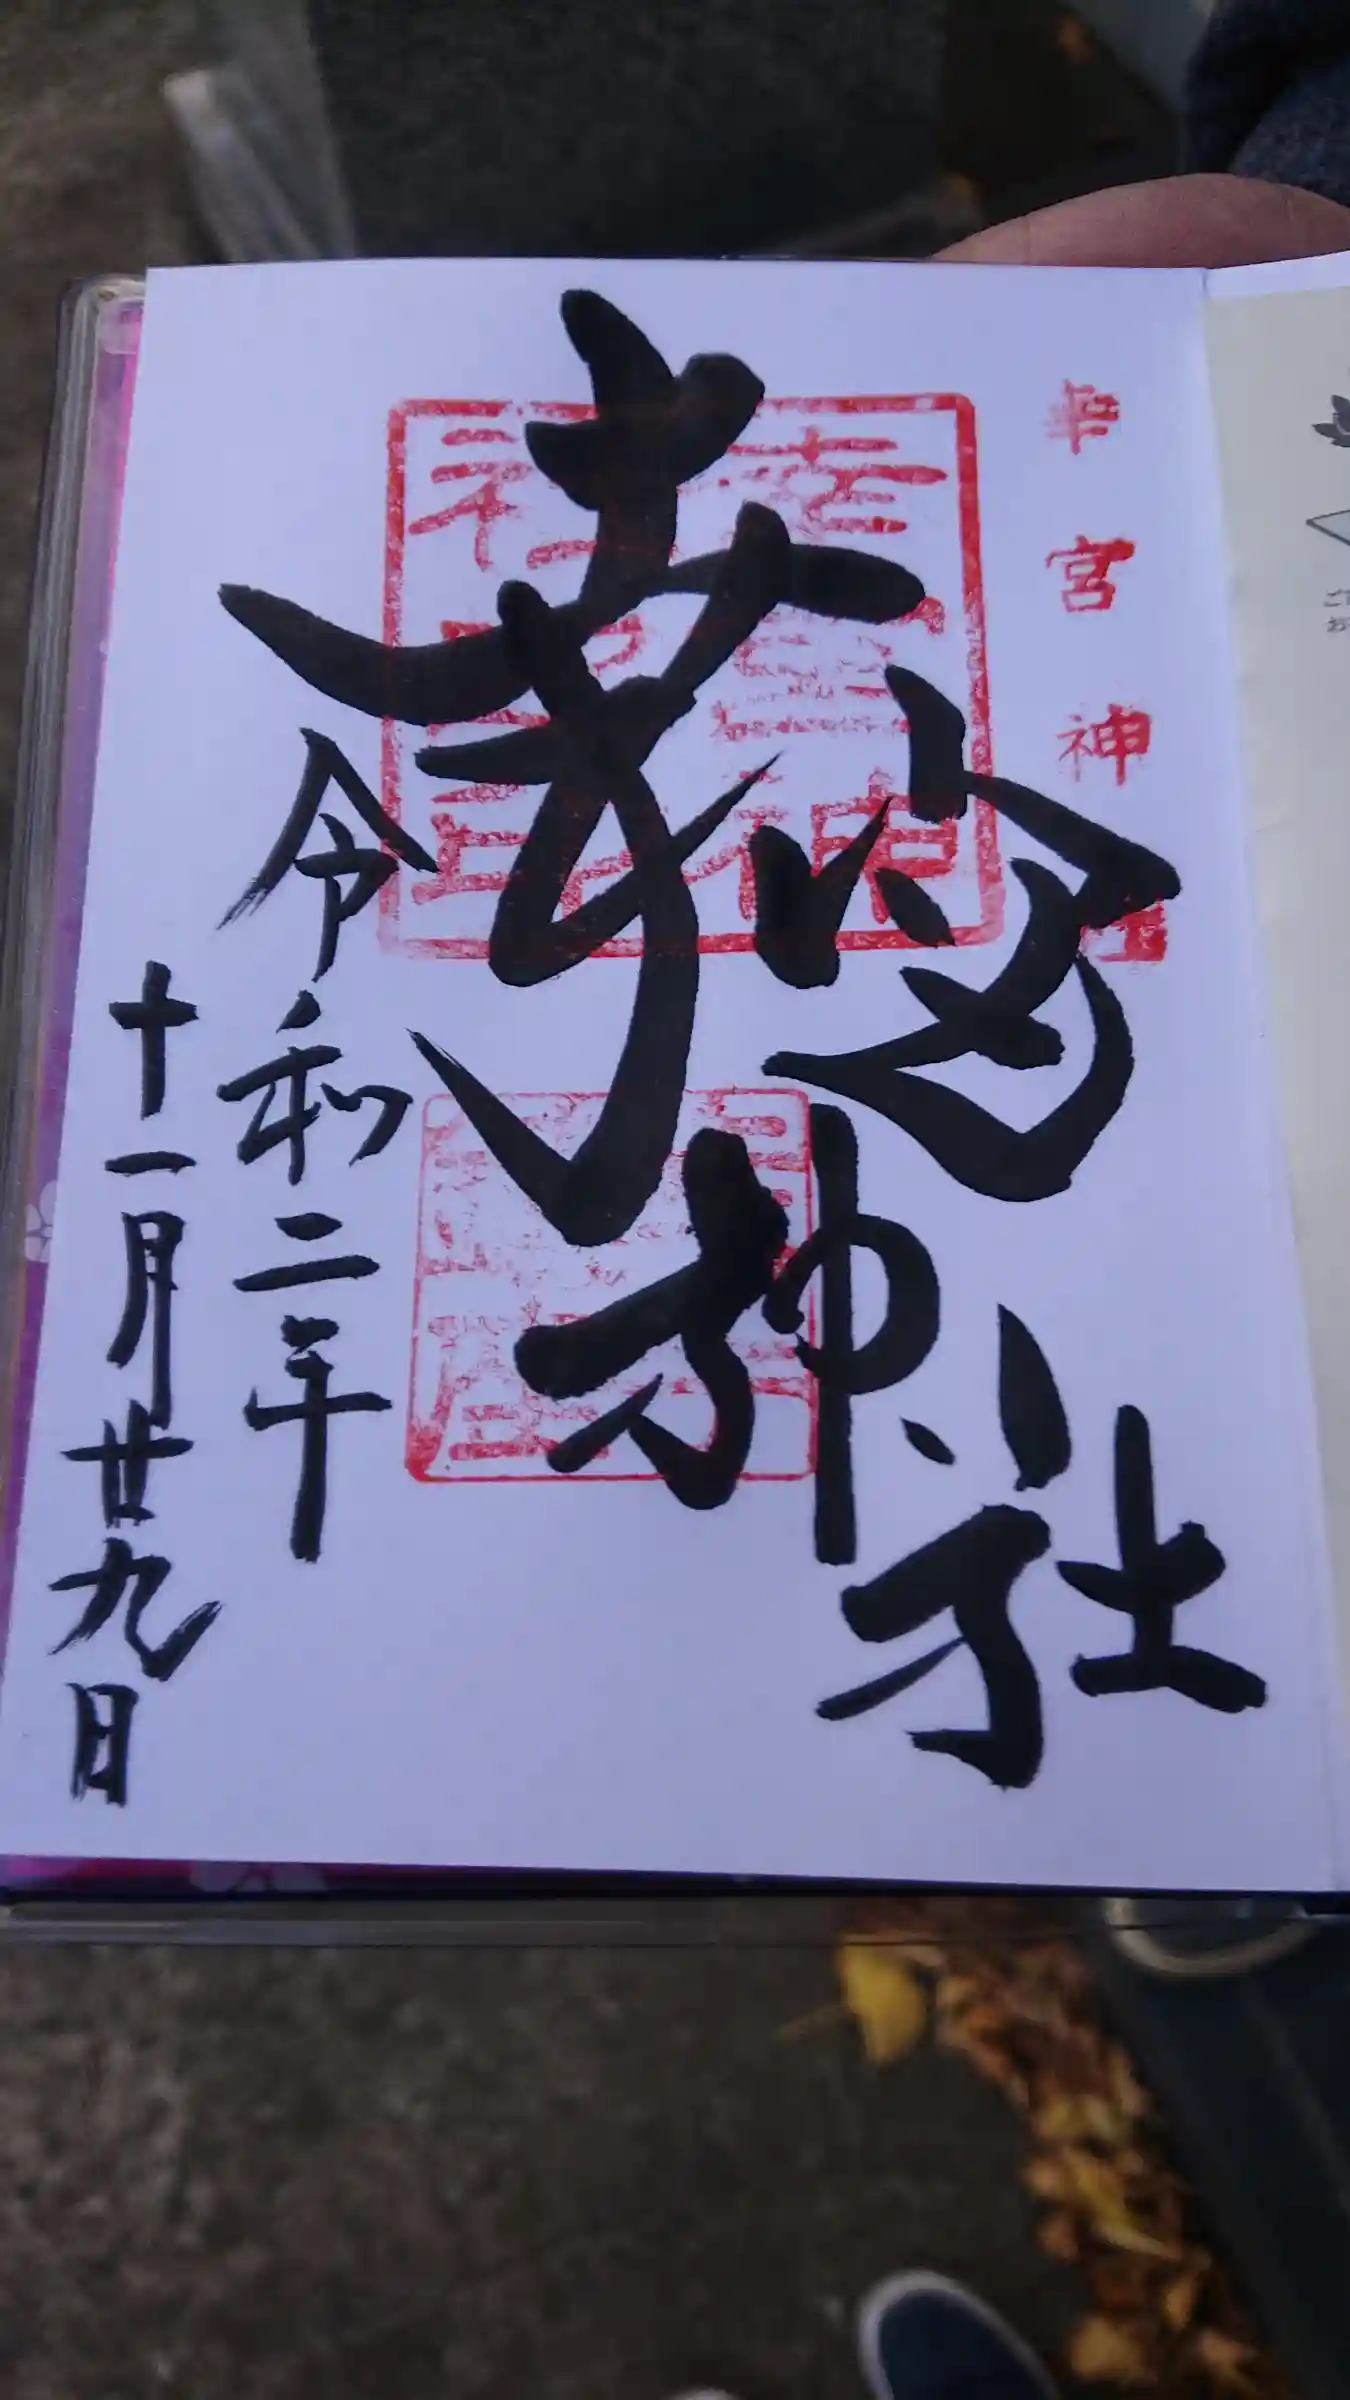 幸宮神社
幸宮神社
令和二年
十一月廿九日